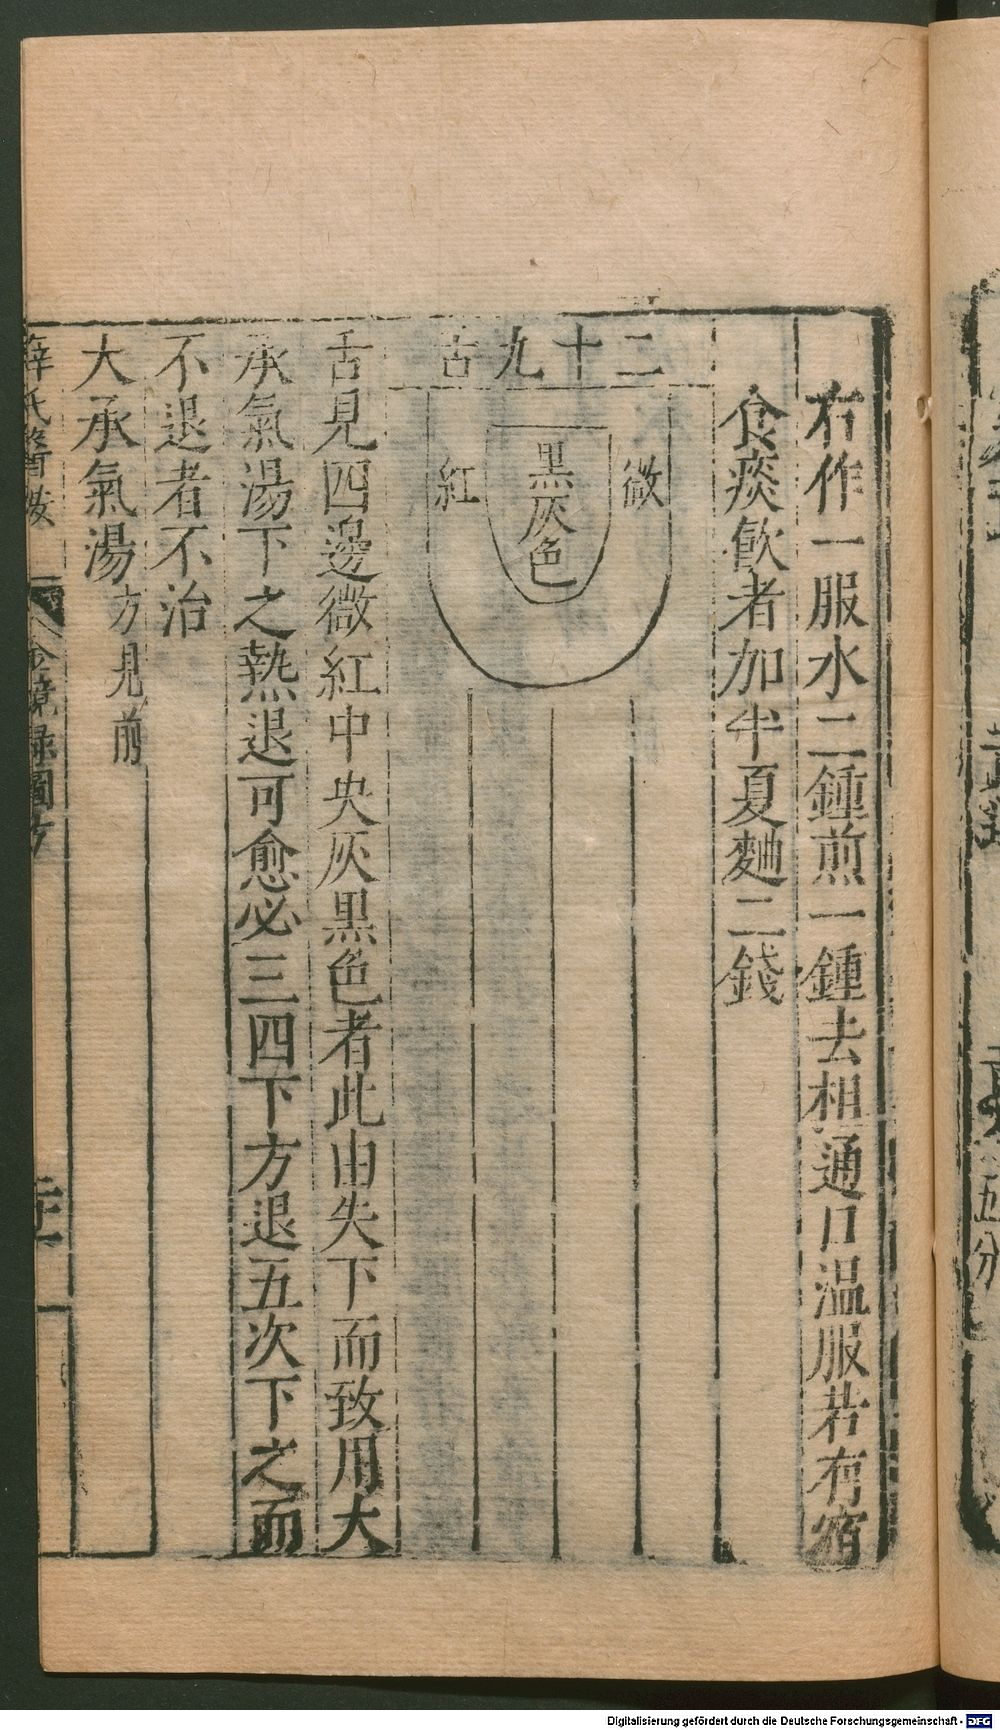 右作一服水二鍾煎一鍾去相通口溫服若有宿
食痰飲者加半夏麯二錢
二十九舌
微
黑灰色
紅
舌見四邊微紅中央灰黑色者此由失下而致用大
承氣湯下之熱退可愈必三四下方退五次下之而
不退者不治
大承氣湯方見前
薛氏醫按
金鏡錄圖方
五分
Digitalisierung gefördert durch die Deutsche Forschungsgemeinschaft - DFG